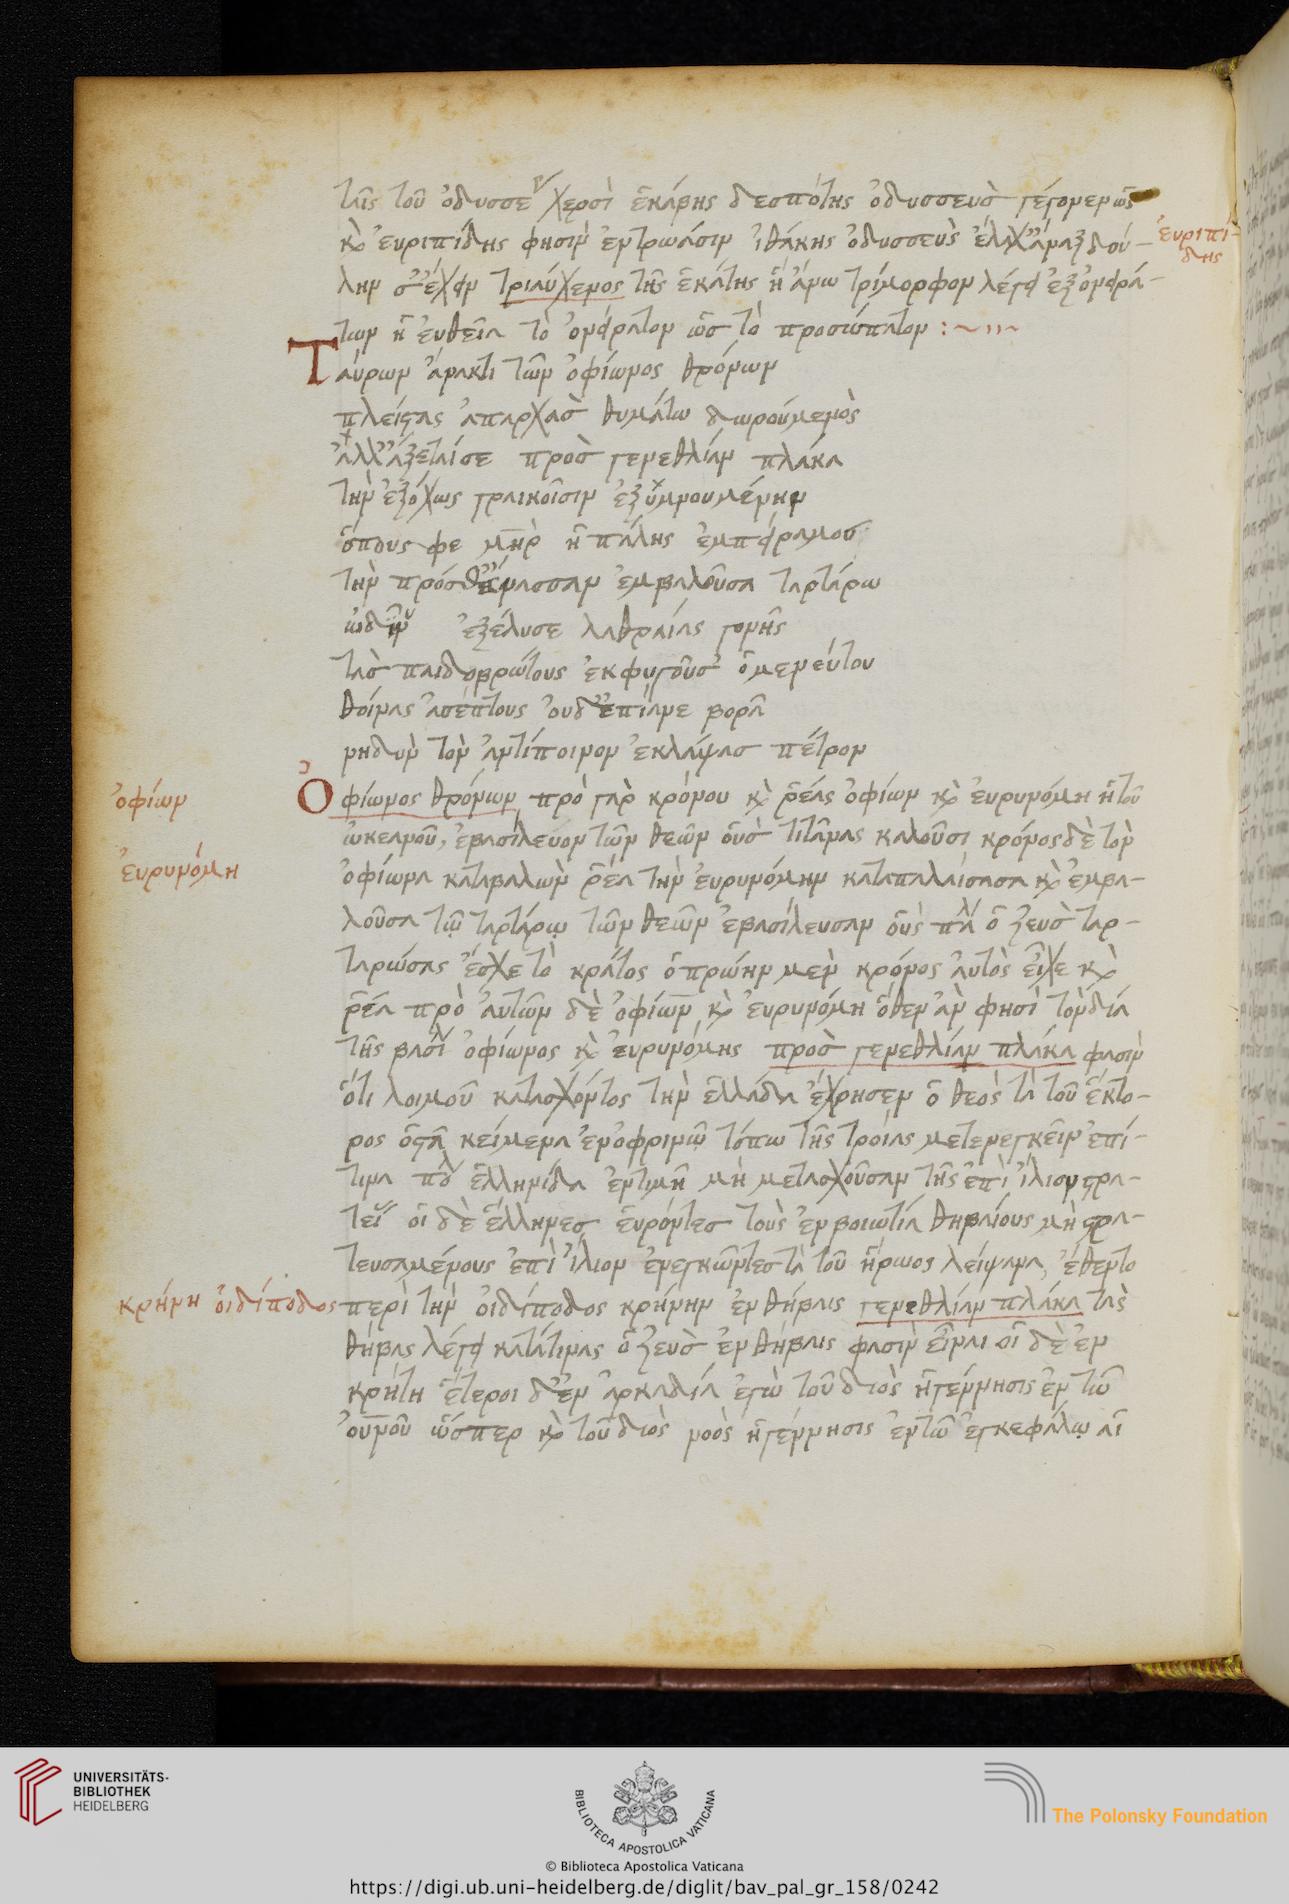 ταῖς τοῦ ὀδυσσέ χερσὶ ἑκάβης δεσπότης ὀδυσσεὺσ γέγονεν ὡς
κ εὐριπίδης φησιν ἐν τρωάσιν ἰθάκης ὀδυσσεὺς ἔλαχ' ἄναξ δού-
εὐριπί-
δης
λην σ' ἔχειν τριαύχενος τῆς ἑκάτης ἣν ἄνω τρίμορφον λέγει ἐξ ὀνειρά-
των ἡ εὐθεῖα τὸ ὀνείρατον ὡσ τὸ προσώπατον :~
Ταύρων ἄνακτι τῶν ὀφίωνος θρόνων
πλείστας ἀπαρχὰσ θυμάτων δωρούμενος
ἀλλ' ἄξεταί σε πρὸσ γενεθλίαν πλάκα
τὴν ἐξόχως γραικοῖσιν ἐξυμνουμένην
ὅπου σφε μηρ ἡ πάλης ἐμπείραμος
τὴν πρόσθ' ἄνασσαν ἐμβαλοῦσα ταρτάρω
ὠδῖν ἐξέλυσε λαθραίας γονῆς
τὰσ παιδοβρώτους ἐκφυγοῦσ' ὁμευνέτου
θοίνας ἀσέπτους οὐδ' ἐπίανε βορᾶ
νηδυν τὸν ἀντίποινον ἐκλάψασ πέτρον
ὀφίων
Ὀφίωνος θρόνων πρὸ γὰρ κρόνου κ ῥέας ὀφίων κ εὐρυνόμη ἡ τοῦ
ὠκεανοῦ, ἐβασίλευον τῶν θεῶν οὓσ τιτᾶνας καλοῦσι κρόνος δὲ τὸν
εὐρυνόμη
ὀφίωνα καταβαλὼν ῥέα τὴν εὐρυνόμην καταπαλαίσασα κ ἐμβα-
λοῦσα τῷ ταρτάρῳ τῶν θεῶν ἐβασίλευσαν οὓς πα ὁ ζεὺσ ταρ-
ταρώσας ἔσχε τὸ κράτος ὁ πρώην μὲν κρόνος αὐτὸς εἶχε κ
ῥέα πρὸ αὐτῶν δὲ ὀφίων κ εὐρυνόμη ὅθεν ἂν φησὶ τὸν δία
τῆς βασι ὀφίωνος κ εὐρυνόμης προσ γενεθλίαν πλάκα φασὶν
ὅτι λοιμοῦ κατασχόντος τὴν ἑλλάδα ἔχρησεν ὁ θεὸς τὰ τοῦ ἕκτο-
ρος ὀστᾶ κείμενα ἐν ὀφρινῷ τόπω τῆς τροίας μετενεγκεῖν ἐπί-
τινα πο ἑλληνίδα ἐν τιμῆ μὴ μετασχοῦσαν τῆς ἐπὶ ἴλιον στρα-
τεί οἱ δὲ ἕλληνεσ εὑρόντεσ τοὺς ἐν βοιωτία θηβαίους μὴ στρα-
τευσαμένους ἐπὶ ἴλιον ἐνεγκῶντεσ τὰ τοῦ ἥρωος λείψανα, ἔθεντο
κρήνη οἰδίποδος
περὶ τὴν οἰδίποδος κρήνην ἐν θήβαις γενεθλίαν πλάκα τὰς
θήβας λέγει κατάτινας ὁ ζεὺσ ἐν θήβαις φασὶν εἶναι οἱ δὲ ἐν
κρήτη ἕτεροι δ' ἐν ἀρκαδία ἐγὼ τοῦ διὸς ἡ γέννησις ἐν τῶ
οὐνοῦ ὥσπερ κ τοῦ διὸς νοὸς ἡ γέννησις ἐν τῶ ἐγκεφάλῳ αἱ
UNIVERSITÄTS-
BIBLIOTHEK
HEIDELBERG
BIBLIOTECA APOSTOLICA VATICANA
The Polonsky Foundation
© Biblioteca Apostolica Vaticana
https://digi.ub.uni-heidelberg.de/diglit/bav_pal_gr_158/0242